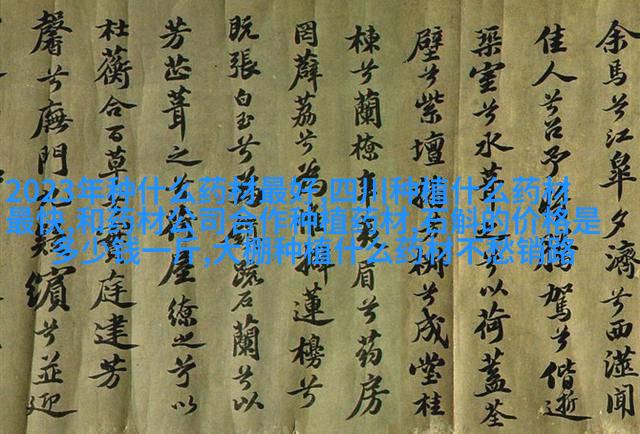 2023年种什么药材最好,四川种植什么药材
最快,和药材公司合作种植药材,石斛的价格是
多少钱一斤,大棚种植什么药材不愁销路
余馬兮江皋濟兮西澨聞
佳人兮召予騰駕兮偕逝
築室兮水之以荷蓋荃
壁兮紫壇椒兮成堂桂
棟兮蘭橑眉兮葯房
罔薜荔兮為擗蓮櫋兮
既張白玉兮為疏石蘭兮以
芳芷葺之屋繚之兮以
杜蘅合百草庭建芳
馨兮廡門嶷繽兮並迎